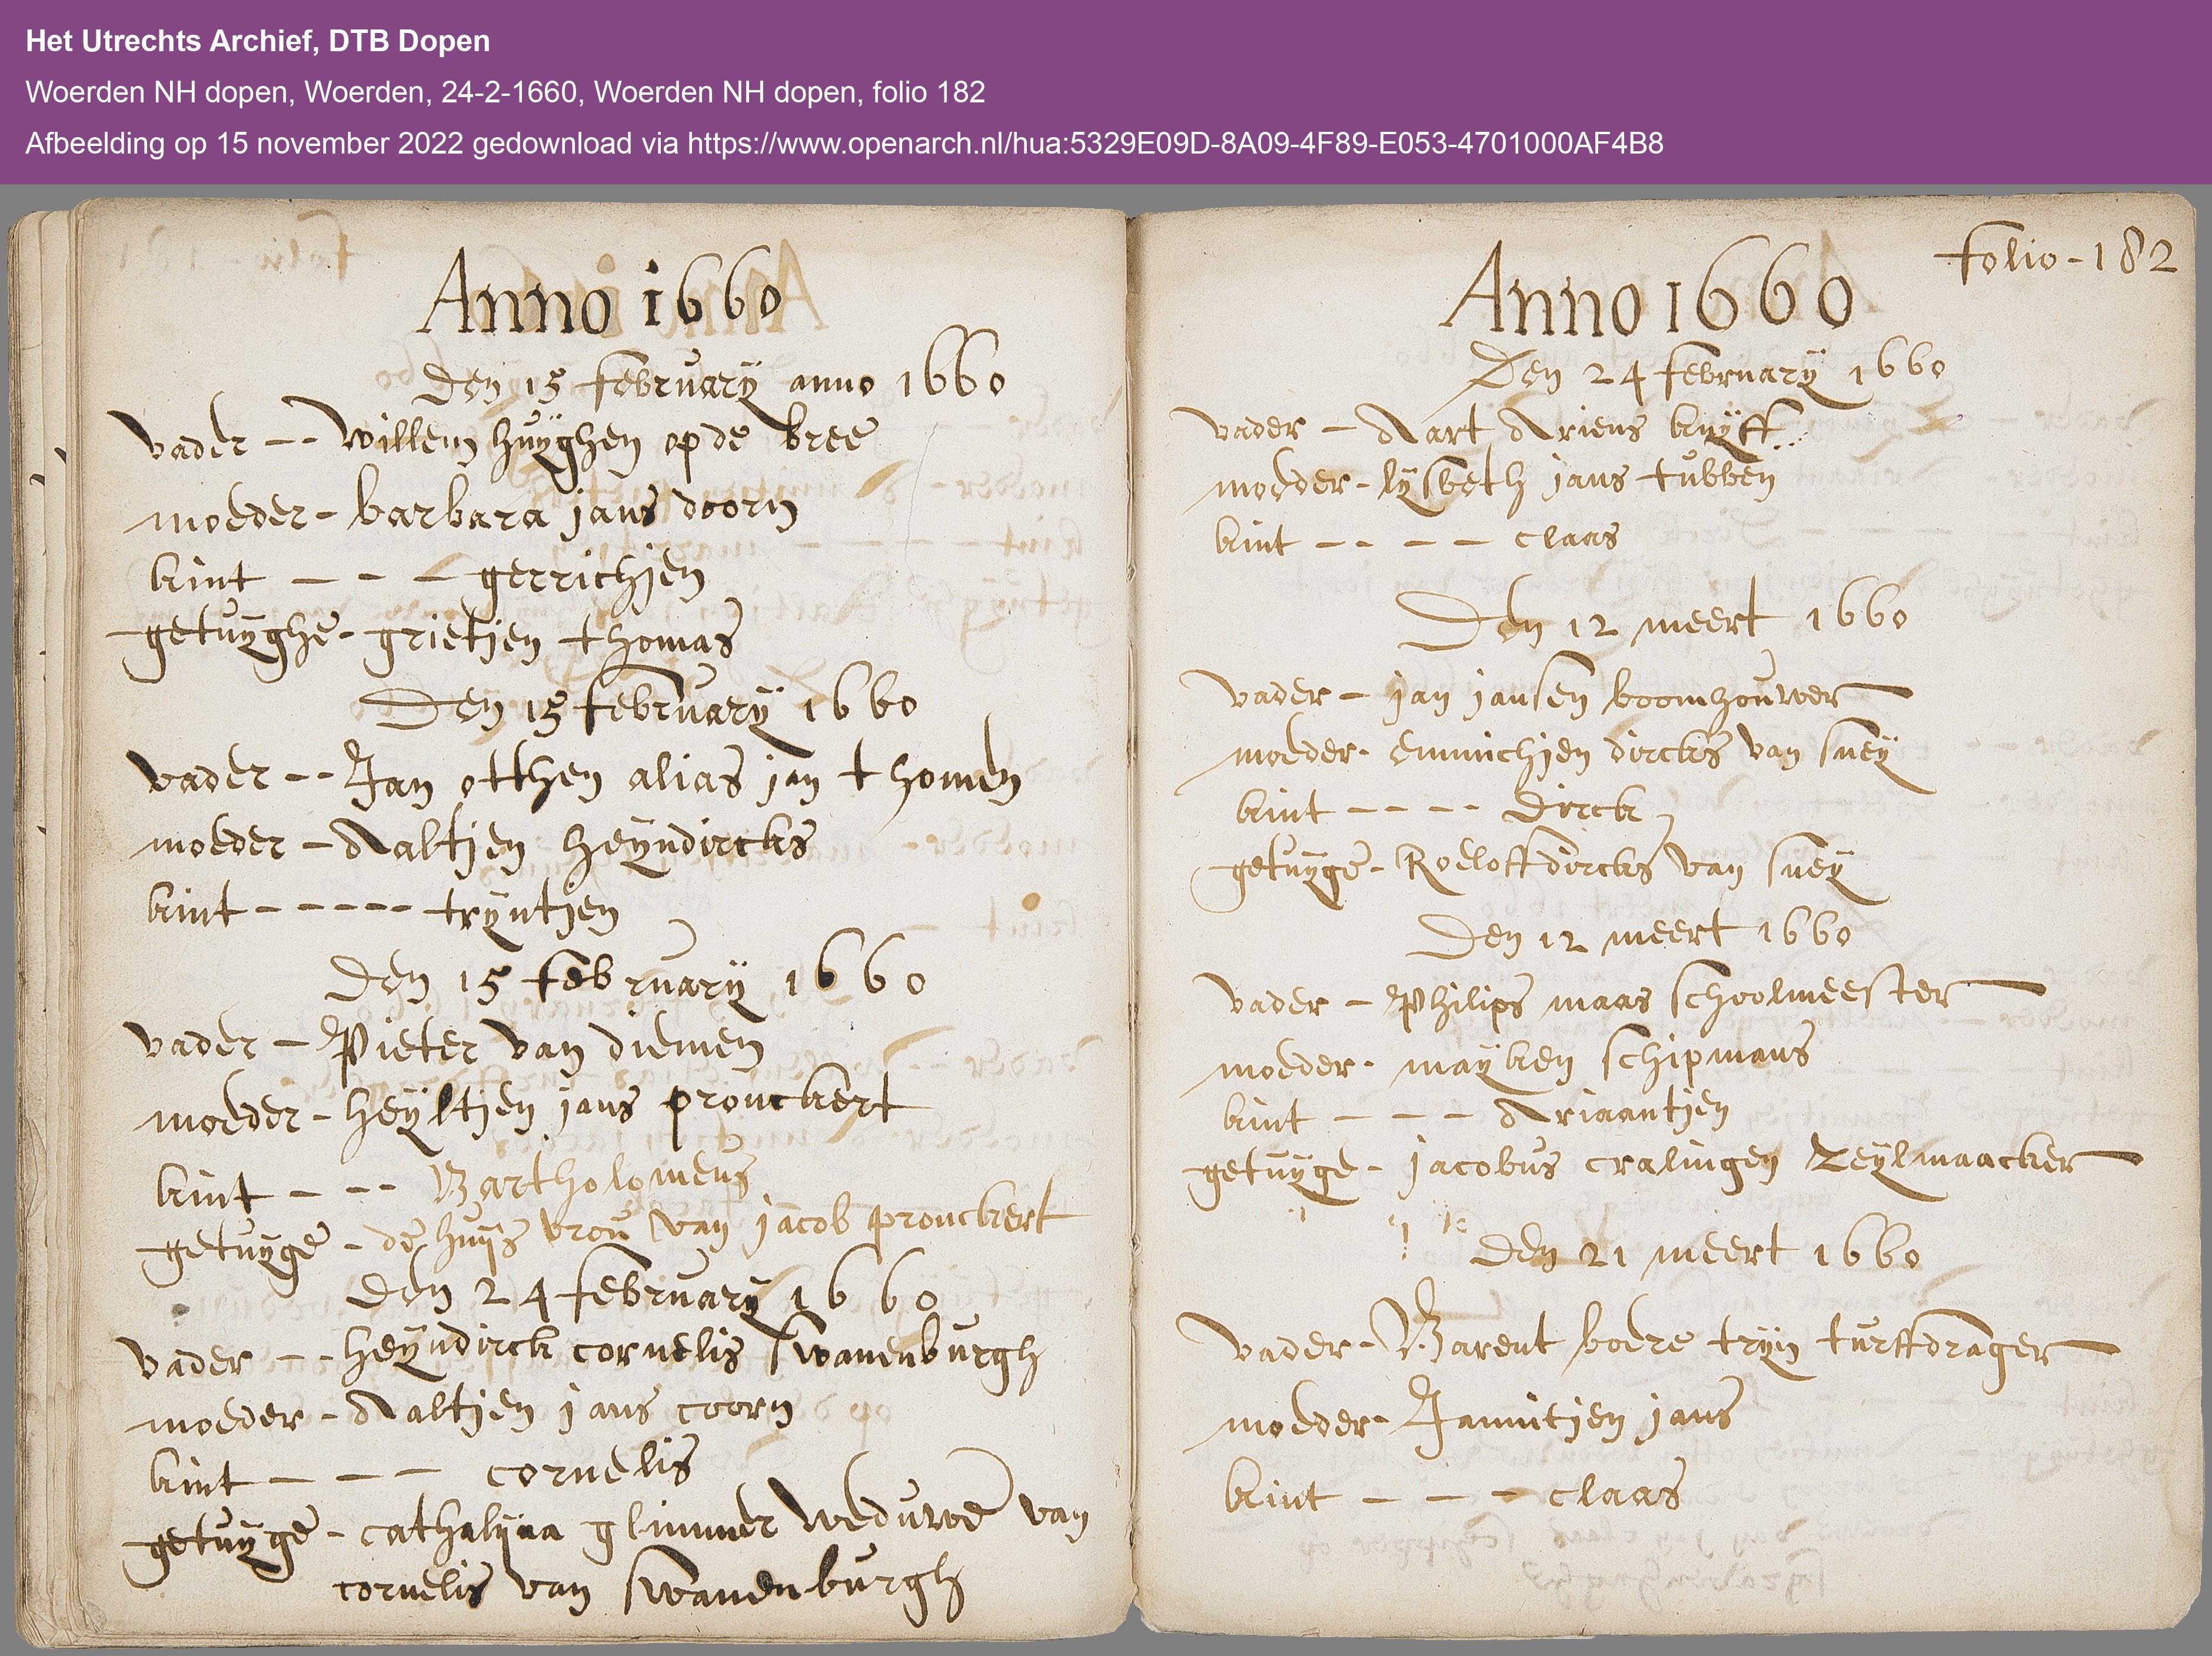 Het Utrechts Archief, DTB Dopen
Woerden NH dopen, Woerden, 24-2-1660, Woerden NH dopen, folio 182
Afbeelding op 15 november 2022 gedownload via https://www.openarch.nl/hua:5329E09D-8A09-4F89-E053-4701000AF4B8
Anno 1660
Den 15 february anno 1660
vader -- willem huyghen op de bree
moeder - barbara jans doorn
kint - - - gerrichjen
getuyghe - grietjen thomas
Den 15 february 1660
vader -- Jan otthen alias jan thomen
moeder - Aaltjen heyndircks
kint - - - - - tryntjen
Den 15 february 1660
vader - Pieter van diemen
moeder - heyltjen jans pronckert
kint - - - Bartholomeus
getuyge - de huijs vrou van jacob pronckert
Den 24 february 1660
vader - - heyndirck cornelis swanenburgh
moeder - Aaltjen jans coorn
kint - - - cornelis
getuyge - cathalyna glimmer weduwe van
cornelis van swanenburgh
folio - 182
Anno 1660
Den 24 february 1660
vader - Aart Ariens kuyff
moeder - lysbeth jans tubben
kint - - - - claas
Den 12 meert 1660
vader - jan jansen boomhouwer
moeder - emmichjen dircks van sney
kint - - - - Dirck
getuyge - Roeloff dircks van sney
Den 12 meert 1660
vader - Philips maas schoolmeester
moeder - mayken schipmans
kint - - - Ariaantjen
getuyge - jacobus cralingen zeylmaacker
Den 21 meert 1660
vader - Barent boere tryn turffdrager
moeder - Jannitjen jans
kint - - - claas